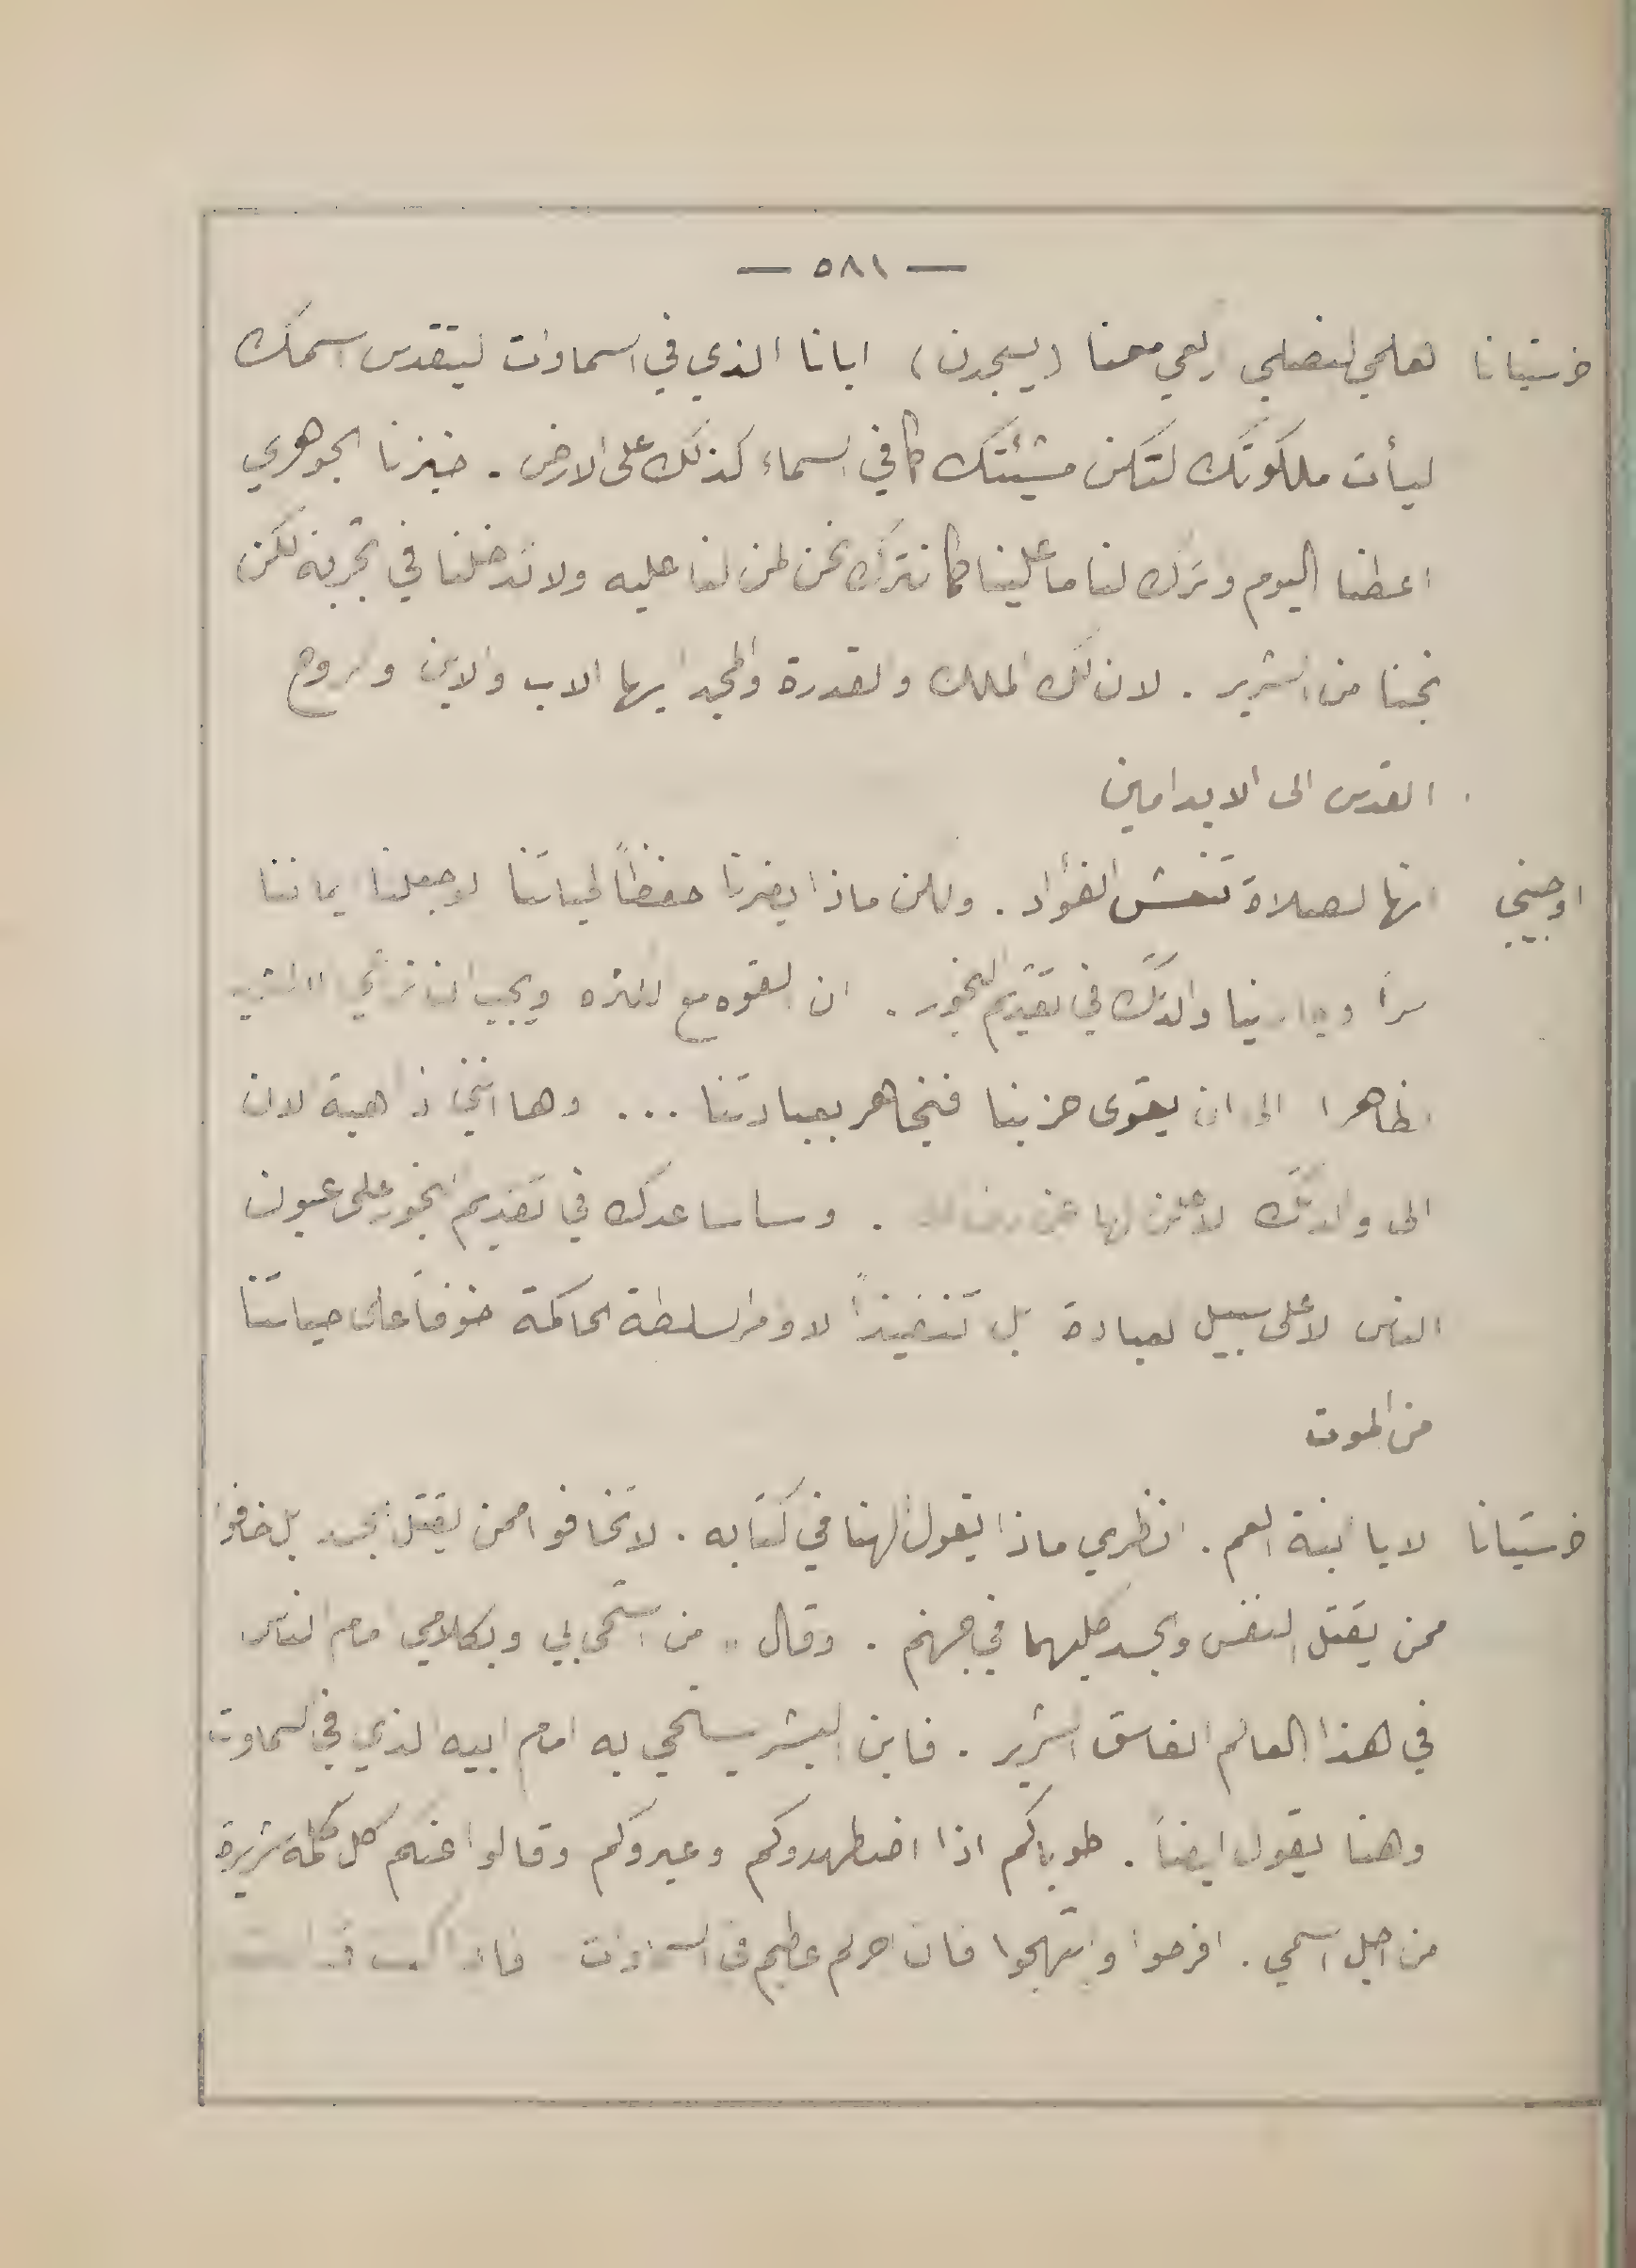 — ٥٨١ —
خرستيانا هلمي لنصلي اركعي معنا (يسجدن) ابانا الذي في السماوات ليتقدس اسمك
ليأت ملكوتك لتكن مشيئتك كما في السماء كذلك على الارض . خبزنا الجوهري
اعطنا اليوم وترك لنا ما علينا كما نترك نحن لمن لنا عليه ولا تدخلنا في تجربة لكن
نجنا من الشرير . لان لك الملك والقدرة والمجد ايها الاب والابن والروح
القدس الى الابد امين
اوجيني انها لصلاة تنعش الفؤاد . ولكن ماذا يضرنا حفظاً لحياتنا لو جعلنا ايماننا
سراً والدتك في تقديم البخور . ان القوه مع الكثره ويجب ان
ظاهرا الى ان يقوى حزبنا فنجاهر بعبادتنا ... وها انني ذاهبة لان
الى والدتك لاعلن لها عن . وساساعدك في تقديم البخور على عيون
الناس لا على سبيل العبادة بل تنفيذاً لاوامر السلطة الحاكمة خوفاً على حياتنا
من الموت
خرستيانا لا يا ابنة العم . انظري ماذا يقول الهنا في كتابه . لا تخافوا ممن يقتل الجسد بل خافوا
ممن يقتل النفس والجسد كليهما في جهنم . وقال " من استحى بي وبكلامي امام الناس
في هذا العالم الفاسق الشرير . فابن البشر يستحي به امام ابيه الذي في السماوت
وهنا يقول ايضاً . طوباكم اذا اضطهدوكم وعيروكم وقالوا عنكم كل كلمة شريرة
من اجل اسمي . افرحوا وابتهجوا فان اجركم عظيم في السماوات